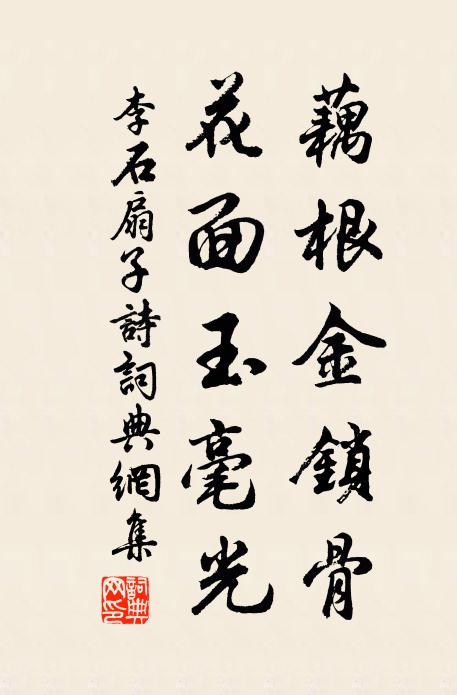 藕根金鎖骨
花面玉毫光
李石扇子詩詞典網集
詞典网印